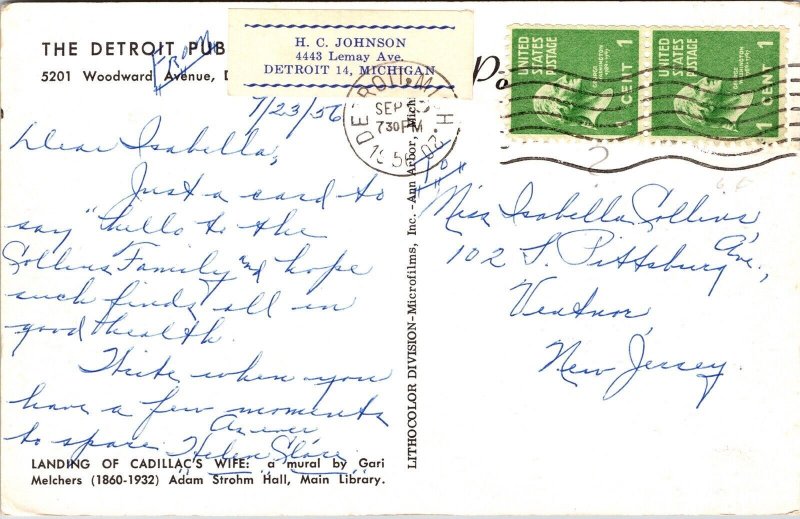 THE DETROIT PUB
5201 Woodward Avenue, D
FROM
H. C. JOHNSON
4443 Lemay Ave.
DETROIT 14, MICHIGAN
DETROIT
SEP
730PM
1956
Po
UNITED STATES POSTAGE
1 CENT
UNITED STATES POSTAGE
1 CENT
7/23/56
Dear Isabella,
Just a card to
say "hello to the
Collins Family" and hope
such finds all in
good health.
Write when you
have a few moments
to spare.
As ever
Helen
LANDING OF CADILLAC'S WIFE: a mural by Gari
Melchers (1860-1932) Adam Strohm Hall, Main Library.
LITHOCOLOR DIVISION-Microfilms, Inc.-Ann Arbor, Mich
"To"
Miss Isabella Collins
102 S. Pittsburg Ave.,
Ventnor,
New Jersey.
2